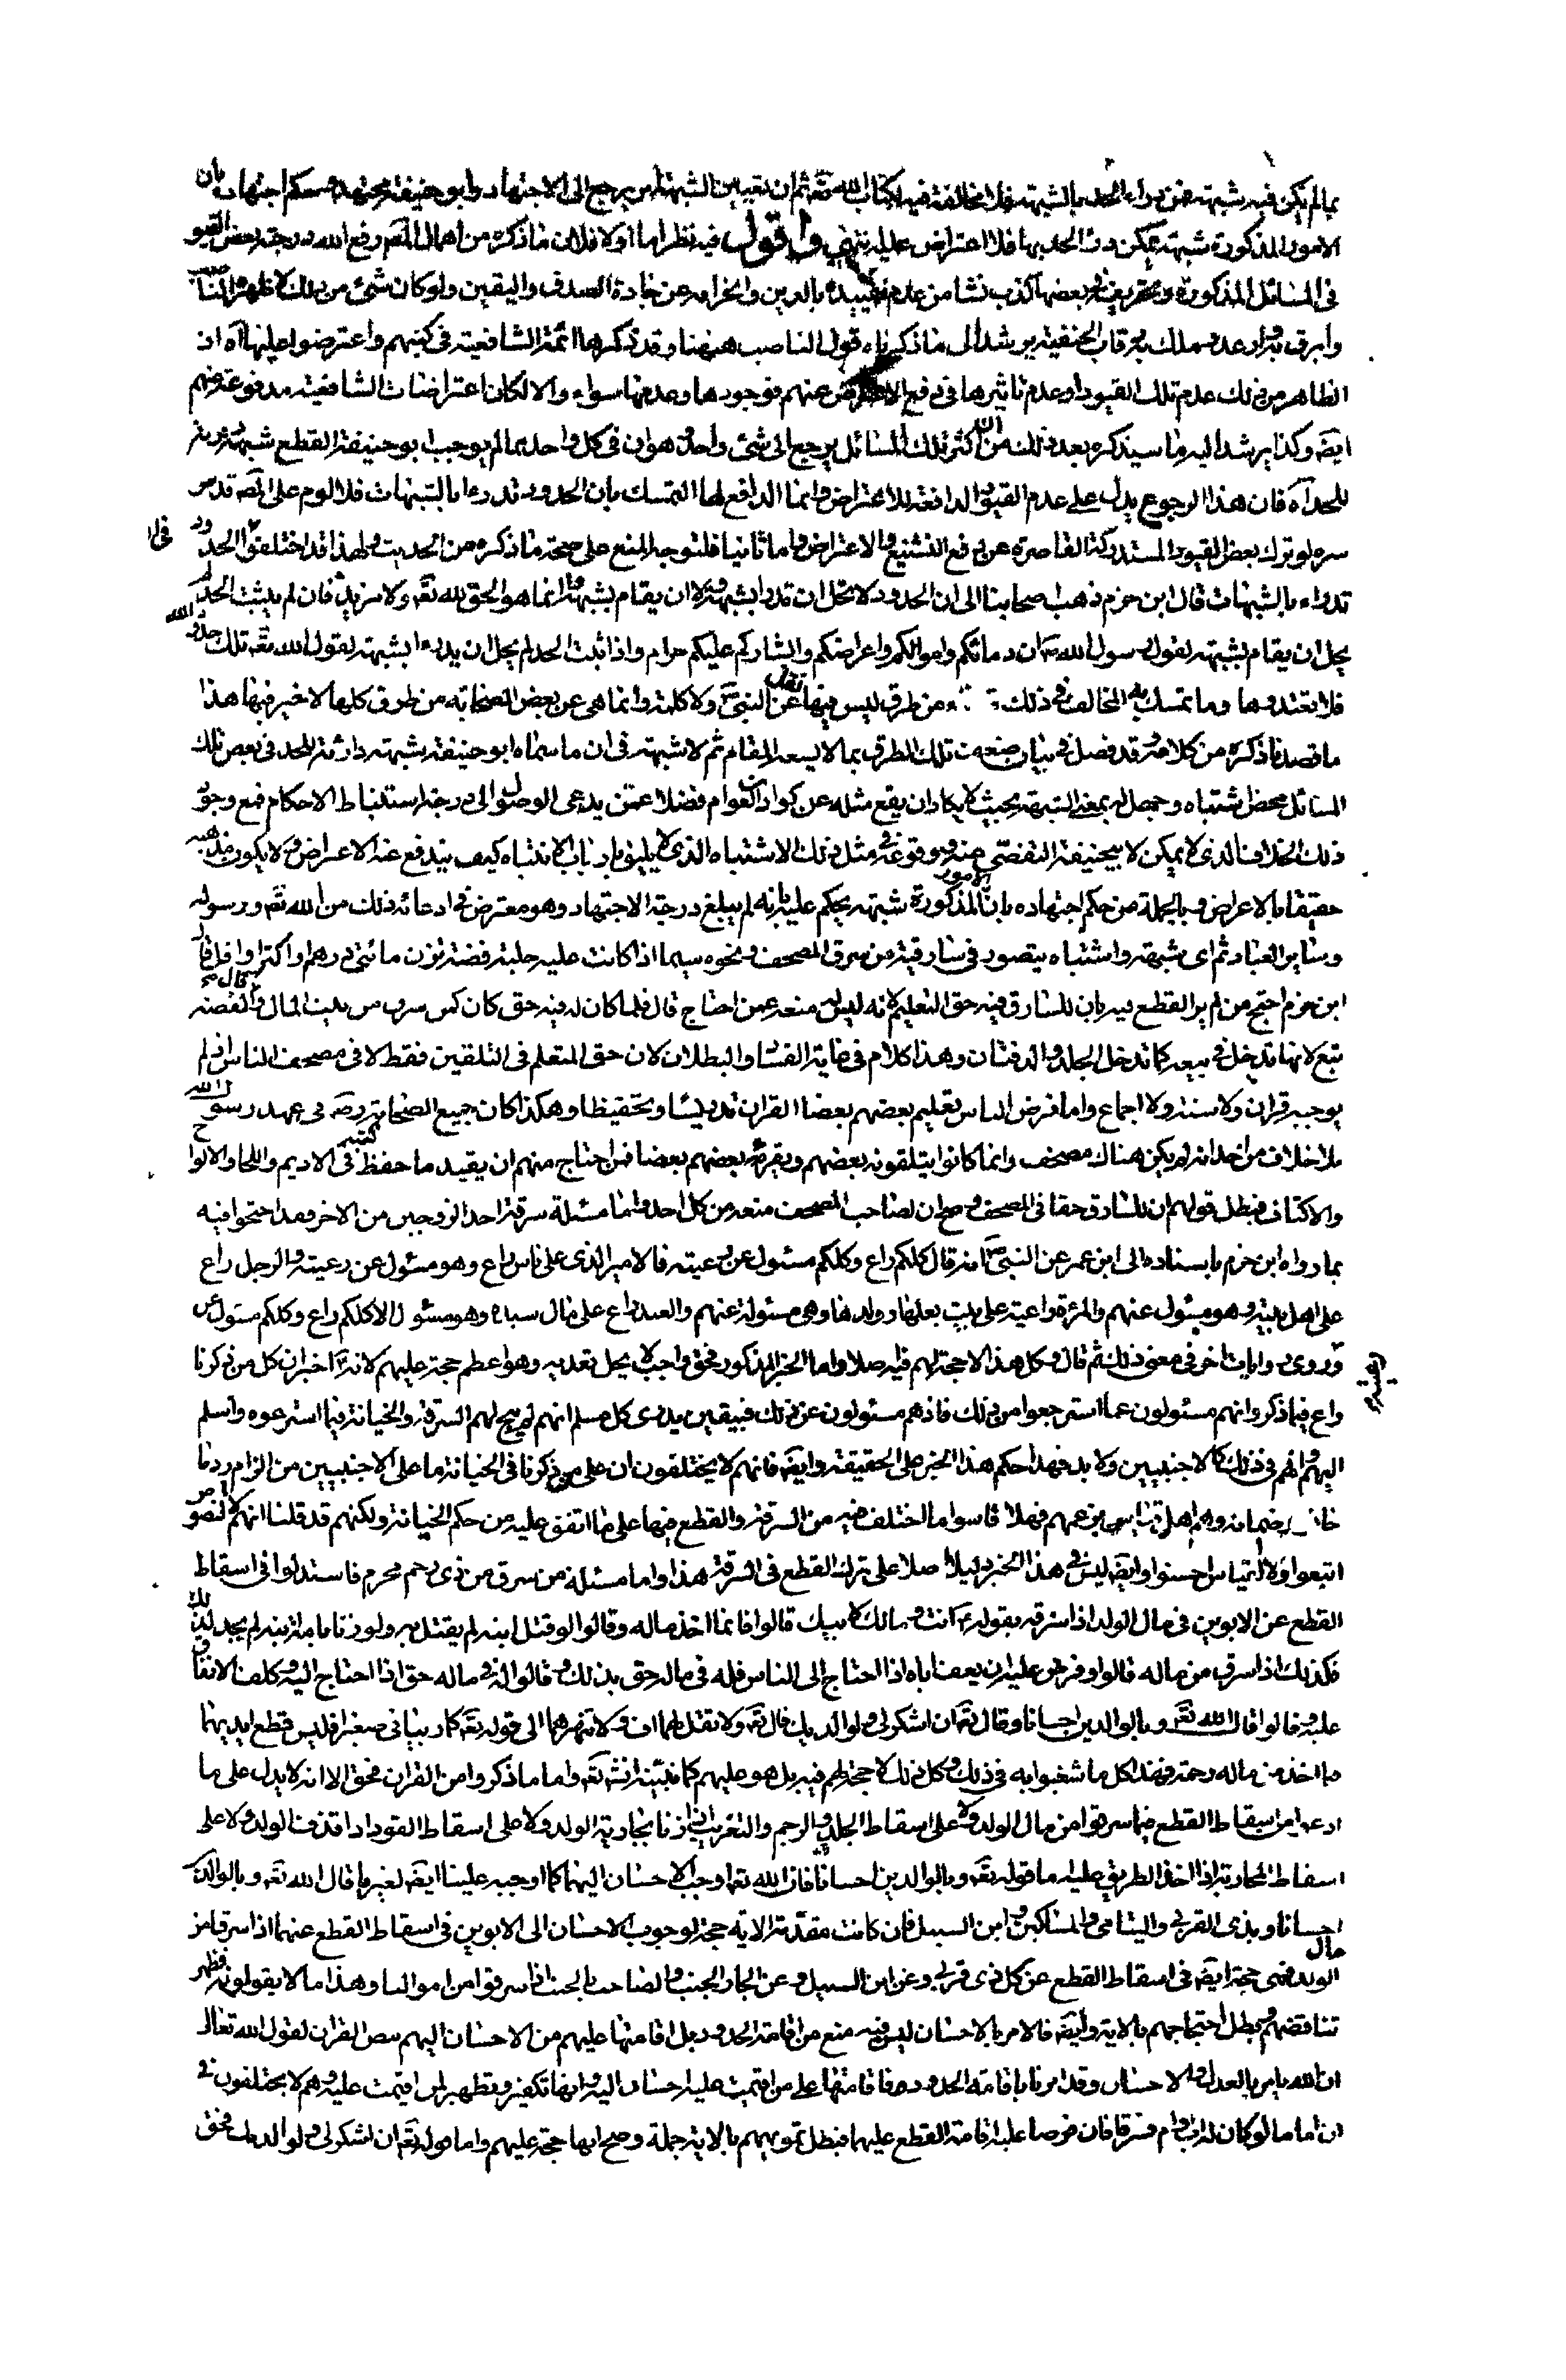 بما لم يكن فيه شبهة فمن درأ الحد بالشبهة فلا مخالفة فيه لكتاب الله تعه ثم ان تعيين الشبهة امر يرجع الى الاجتهاد وابو حنيفة مجتهد وحكم اجتهاده بان
الامور المذكورة شبهة يمكن درئ الحد بها فلا اعتراض عليه انتهى واقول فيه نظر اما اولا فلان ما ذكره من اهمال المص رفع الله درجته بعض القيود
في المسائل المذكورة وتحريفه في بعضها كذب نشا من عدم تقييده بالدين وانحرافه عن جادة الصدق واليقين ولو كان شئ من ذلك لاظهره الناصب
وابرق وارعد وملك به رقاب الحنفية يرشد الى ما ذكرناه قول الناصب ههنا وقد ذكرها ائمة الشافعية في كتبهم واعترضوا عليها اه اذ
الظاهر من ذلك عدم تلك القيود او عدم تاثيرها في دفع الاعتراض عنهم فوجودها وعدمها سواء والا لكان اعتراضات الشافعية مدفوعة عنهم
ايضه وكذا يرشد اليه ما سيذكره بعد ذلك من ان اكثر تلك المسائل يرجع الى شئ واحد وهو ان في كل واحد بما لم يوجب ابو حنيفة القطع شبهة دارئة
للحد اه فان هذا الرجوع يدل على عدم القيود الدافعة للاعتراض وانما الدافع لها التمسك بان الحدود تدرء بالشبهات فلا لوم على المص قدس
سره لو ترك بعض القيود المستدركة القاصرة عن دفع التشنيع والاعتراض واما ثانيا فلتوجه المنع على صحة ما ذكره من الحديث ولهذا قد اختلفوا في ان الحدود
تدرء بالشبهات قال ابن حزم ذهب اصحابنا الى ان الحدود لا يحل ان تدرء بشبهة ولا ان يقام بشبهة وانما هو الحق لله تعه ولا مزيد فان لم يثبت الحد لم
يحل ان يقام بشبهة لقول رسول الله ص ان دمائكم واموالكم واعراضكم وابشاركم عليكم حرام واذا ثبت الحد لم يحل ان يدرء بشبهة لقول الله تعه تلك حدود الله
فلا تعتدوها وما تمسك به المخالف في ذلك من طرق ليس فيها نقل عن النبي ص ولا كلمة وانما هي عن بعض الصحابة من طرق كلها لا خير فيها هذا
ما قصدنا ذكره من كلامه وقد فصل في بيان ضعف تلك الطرق بما لا يسعه المقام ثم لا شبهة في ان ما سماه ابو حنيفة شبهة دارئة للحد في بعض تلك
المسائل محض اشتباه وحصل له بمعنى الشبهة بحيث لا يكاد ان يقع مثله عن كوادن العوام فضلا عمن يدعى الوصول الى درجة استنباط الاحكام فمع وجود
ذلك الخلاف الذي لا يمكن لابيحنيفة التفصى عنه ووقوعه في مثل ذلك الاشتباه الذي لا يليق بارباب الانتباه كيف يندفع عنه الاعتراض ولا يكون مذهبه
حقيقا بالاعراض وبالجملة من حكم اجتهاده بان الامور المذكورة شبهة يحكم عليه بانه لم يبلغ درجة الاجتهاد وهو معترض في ادعائه ذلك من الله تعه ورسوله
وساير العباد ثم اي شبهة واشتباه يتصور في سارقية من سرق المصحف ونحوه سيما اذا كانت عليه حلية فضة تزن مائتي درهم واكثر او اقل قال
ابن حزم احتج من لم ير القطع فيه بان للسارق فيه حق التعليم لانه ليس له منعه عمن احتاج قال فلما كان له فيه حق كان كمن سرق من بيت المال قال والفضة
تبع لانها تدخل في بيعه كما تدخل الجلد والدفتان وهذا كلام في غاية الفساد والبطلان لان حق المتعلم في التلقين فقط لا في مصحف الناس اذ لم
يوجبه قران ولا سنة ولا اجماع وانما فرض الناس تعليم بعضهم بعضا القران تدريسا وتحفيظا وهكذا كان جميع الصحابة رضه في عهد رسول الله
بلا خلاف من احد انه لم يكن هناك مصحف وانما كانوا يتلقونه بعضهم ويقرئه بعضهم بعضا فمن احتاج منهم ان يقيد ما حفظ كتبه في الاديم واللخاف والالواح
والاكتاف فبطل قولهم ان للسارق حقا في المصحف وصح ان لصاحب المصحف منعه من كل احد واما مسئلة سرقة احد الزوجين من الاخر فقد احتجوا فيه
بما رواه ابن حزم باسناده الى ابن عمر عن النبي ص انه قال كلكم راع وكلكم مسئول عن رعيته فالامير الذي على ناس راع وهو مسئول عن رعيته والرجل راع
على اهل بيته وهو مسئول عنهم والمرءة راعية على بيت بعلها وولدها وهي مسئولة عنهم والعبد راع على مال سيده وهو مسئول الا كلكم راع وكلكم مسئول عن
رعيته وروى روايات اخر في معنى ذلك ثم قال وكل هذا لا حجة لهم فيه اصلا واما الخبر المذكور فحق واجب لا يحل تعديه وهو اعظم حجة عليهم لانه ص اخبر ان كل من ذكرنا
راع فيما ذكر وانهم مسئولون عما استرعوا من ذلك فاذ هم مسئولون عن ذلك فبيقين يدرى كل مسلم انهم لم يبح لهم السرقة والخيانة فيما استرعوه واسلم
اليهم وانهم في ذلك كالاجنبيين ولا بد فهذا حكم هذا الخبر على الحقيقة وايضه فانهم لا يختلفون ان على من ذكرنا في الخيانة ما على الاجنبيين من الزام رد ما
خان وضمانه وهم اهل قياس بزعمهم فهلا قاسوا ما اختلف فيه من السرقة والقطع فيها على ما اتفق عليه من حكم الخيانة ولكنهم قد قلنا انهم لا النصوص
اتبعوا ولا القياس احسنوا وايضه ليس في هذا الخبر دليل اصلا على ترك القطع في السرقة هذا واما مسئلة من سرق من ذي رحم محرم فاستدلوا في اسقاط
القطع عن الابوين في مال الولد اذا سرقه بقوله ص انت ومالك لابيك قالوا فانما اخذ ماله وقالوا لو قتل ابنه لم يقتل به ولو زنا بامة ابنه لم يحد لذلك
فكذلك اذا سرق من ماله قالوا وفرض عليه ان يعف اباه اذا احتاج الى الناس فله في ماله حق بذلك وقالوا له في ماله حق اذا احتاج اليه وكلف الانفاق
عليه وقالوا قال الله تعه وبالوالدين احسانا وقال تعه ان اشكر لي ولوالديك قال تعه ولا تقل لهما اف ولا تنهرهما الى قوله تعه كما ربياني صغيرا فليس قطع ايديهما
بما اخذ من ماله رحمة فهذا كل ما شغبوا به في ذلك وكل ذلك لا حجة لهم فيه بل هو عليهم كما نبينه انشا الله تعه واما ما ذكروا من القران فحق الا انه لا يدل على ما
ادعوه من اسقاط القطع فيما سرقوا من مال الولد ولا على اسقاط الجلد والرجم والتغريب اذا زنا بجارية الولد ولا على اسقاط القود اذا قذف الولد ولا على
اسقاط المحاربة اذا اخذ الطريق عليه اما قوله تعه وبالوالدين احسانا فان الله تعه اوجب الاحسان اليهما كما اوجبه علينا ايضه لغيرهما قال الله تعه وبالوالدين
احسانا وبذي القربى واليتامى والمساكين وابن السبيل فان كانت مقدمة الاية حجة لوجوب الاحسان الى الابوين في اسقاط القطع عنهما اذا سرقا من مال
الولد فهي حجة ايضه في اسقاط القطع عن كل ذي قربى وعن ابن السبيل وعن الجار الجنب والصاحب بالجنب اذا سرقوا من اموالنا وهذا ما لا يقولونه فظهر
تناقضهم وبطل احتجاجهم بالاية وايضه فالامر بالاحسان ليس فيه منع من اقامة الحدود بل اقامتها عليهم من الاحسان اليهم بنص القران لقول الله تعالى
ان الله يامر بالعدل والاحسان وقد امرنا باقامة الحدود فاقامتها على من اقيمت عليه احسان اليه وانها تكفير وتطهير لمن اقيمت عليه وهم لا يختلفون في
ان اماما لو كان له اب وام فسرقا فان فرضا عليه اقامة القطع عليهما فبطل تمويههم بالاية جملة وصح انها حجة عليهم واما قوله تعه ان اشكر لي ولوالديك فحق